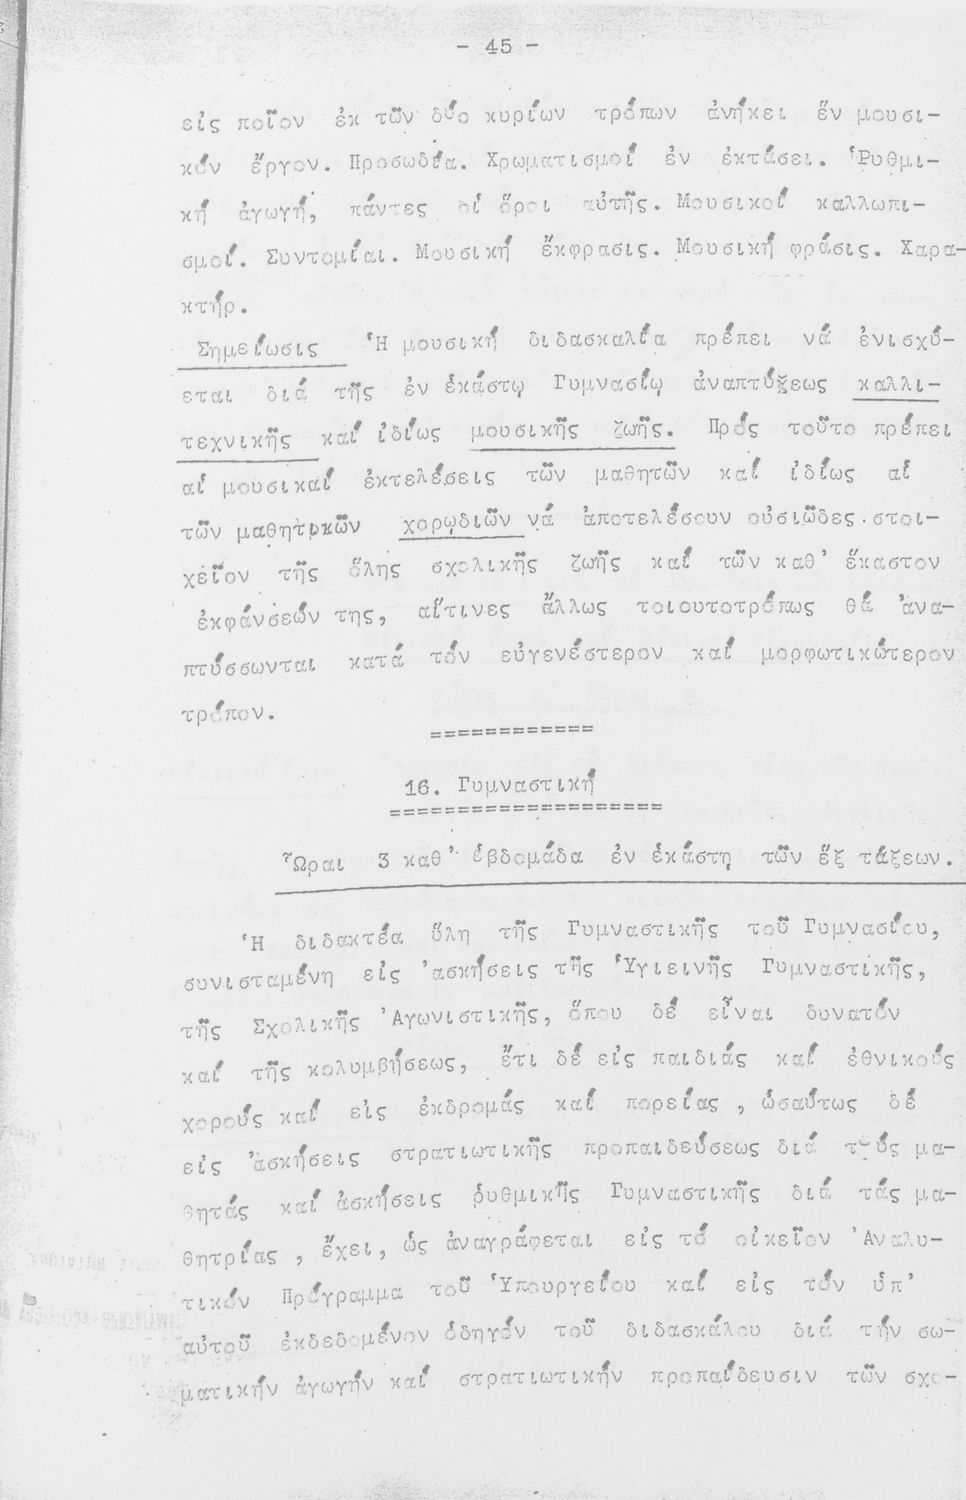 - 45 -
εἰς ποῖον ἐκ τῶν δύο κυρίων τρόπων ἀνήκει ἕν μουσι-
κόν ἔργον. Προσωδία. Χρωματισμοί ἐν ἐκτάσει. Ῥυθμι-
κή ἀγωγή, πάντες οἱ ὅροι αὐτῆς. Μουσικοί καλλωπι-
σμοί. Συντομίαι. Μουσική ἔκφρασις. Μουσική φράσις. Χαρα-
κτήρ.
Σημείωσις Ἡ μουσική διδασκαλία πρέπει νά ἐνισχύ-
εται διά τῆς ἐν ἑκάστῳ Γυμνασίῳ ἀναπτύξεως καλλι-
τεχνικῆς καί ἰδίως μουσικῆς ζωῆς. Πρός τοῦτο πρέπει
αἱ μουσικαί ἐκτελέσεις τῶν μαθητῶν καί ἰδίως αἱ
τῶν μαθητικῶν χορῳδιῶν νά ἀποτελέσουν οὐσιῶδες στοι-
χεῖον τῆς ὅλης σχολικῆς ζωῆς καί τῶν καθ' ἕκαστον
ἐκφάνσεών της, αἵτινες ἄλλως τοιουτοτρόπως θά ἀνα-
πτύσσωνται κατά τόν εὐγενέστερον καί μορφωτικώτερον
τρόπον.
============
16. Γυμναστική
====================
Ὧραι 3 καθ' ἑβδομάδα ἐν ἑκάστη τῶν ἕξ τάξεων.
Ἡ διδακτέα ὕλη τῆς Γυμναστικῆς τοῦ Γυμνασίου,
συνισταμένη εἰς ἀσκήσεις τῆς Ὑγιεινῆς Γυμναστικῆς,
τῆς Σχολικῆς Ἀγωνιστικῆς, ὅπου δέ εἶναι δυνατόν
καί τῆς κολυμβήσεως, ἔτι δέ εἰς παιδιάς καί ἐθνικούς
χορούς καί εἰς ἐκδρομάς καί πορείας , ὡσαύτως δέ
εἰς ἀσκήσεις στρατιωτικῆς προπαιδεύσεως διά τούς μα-
θητάς καί ἀσκήσεις ῥυθμικῆς Γυμναστικῆς διά τάς μα-
θητρίας , ἔχει, ὡς ἀναγράφεται εἰς τό οἰκεῖον Ἀναλυ-
τικόν Πρόγραμμα τοῦ Ὑπουργείου καί εἰς τόν ὑπ'
αὐτοῦ ἐκδεδομένον ὁδηγόν τοῦ διδασκάλου διά τήν σω-
ματικήν ἀγωγήν καί στρατιωτικήν προπαίδευσιν τῶν σχο-